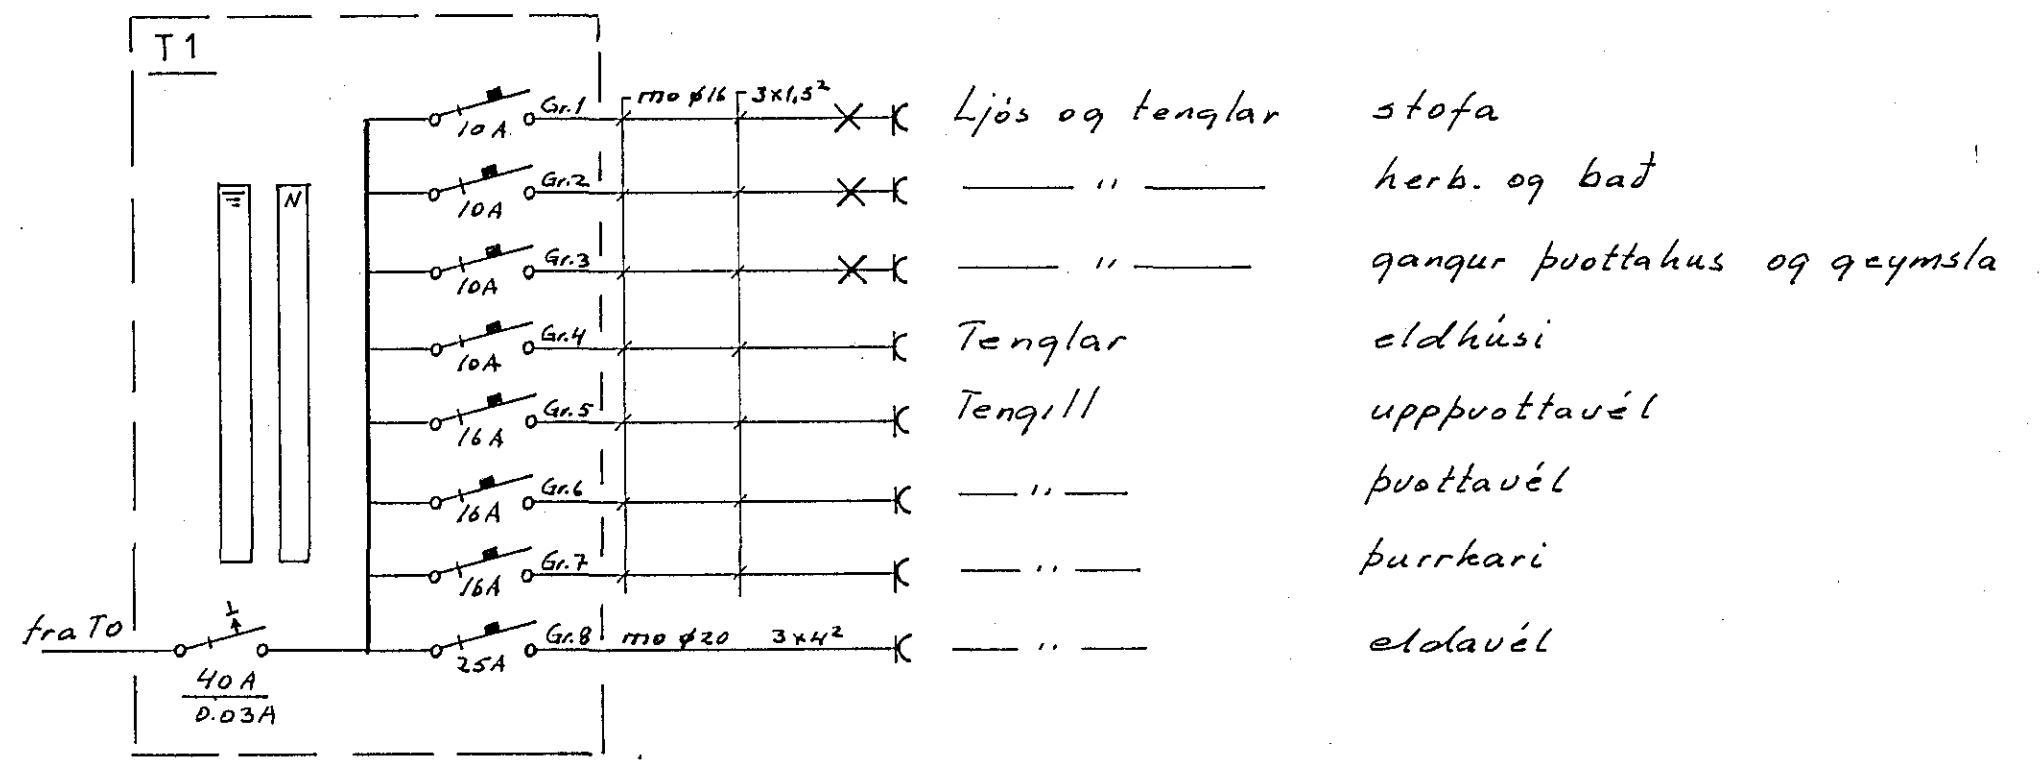 T1
Gr.1 mo ø16 3x1,5² Ljós og tenglar stofa
10A
Gr.2 —— " —— herb. og bað
10A
N
Gr.3 —— " —— gangur þvottahus og geymsla
10A
Gr.4 Tenglar eldhúsi
10A
Gr.5 Tengill uppþvottavél
16A
Gr.6 —— " —— þvottavél
16A
Gr.7 —— " —— þurrkari
16A
fra To Gr.8 mo ø20 3x4² —— " —— eldavél
25A
40A
0.03A